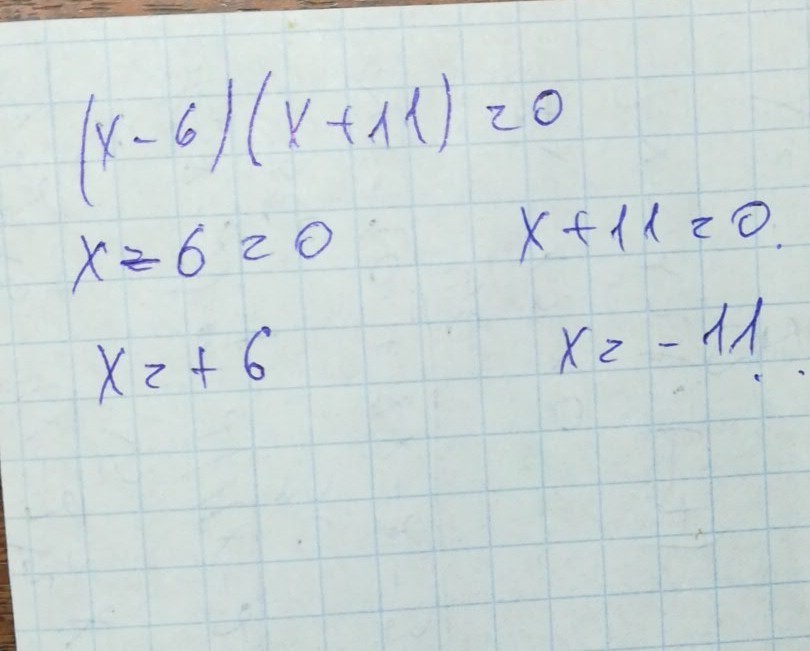 (x-6)(x+11)=0
x-6=0 x+11=0.
x=+6 x=-11